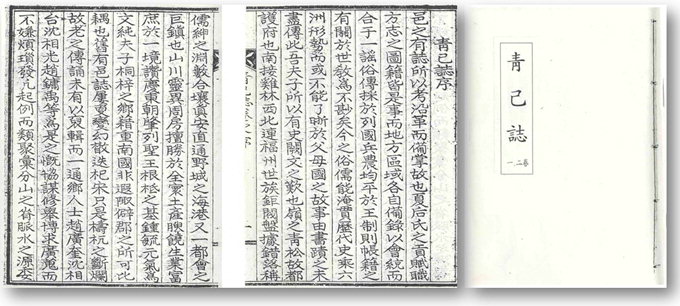 靑己誌
一.二卷
靑己誌序
邑之有誌所以考沿革而備掌故也夏后氏之貢賦職
方志之圖籍皆是事而地方區域各自備録以會統而
合于一謠俗傳採於列國兵農均平於王制則帳籍之
有關於世敎爲不尠矣今之俗儒能淹貫歷代史乘六
洲形勢而或不能了晰於父母國之故事由書蹟之未
盡傳此吾夫子所以有史闕文之歎也嶺之靑松故都
護府也南接雞林西北連福州世族鉅閥盤據錯落稱
儒紳之淵藪合壤眞安直通野城之海港又一都會之
巨鎭也山川靈異周房擅勝於全東土產腴饒生葉富
庶於一境讚慶東朝肇列聖王根柢之基鍾毓元氣爲
文純夫子桐梓之鄕籍重南國非遐陬僻郡之所可比
耦也舊有邑誌屢變幻散逸杞宋只是檮杌之斷爛
故老之傳誦未有以裒輯而一通鄕人士趙廣奎沈相
台沈相光趙鏞禹等爲是之慨協謀修擧博求廣蒐而
不嫌煩瑣發凡起例而類聚彙分山之脊脈水之源委